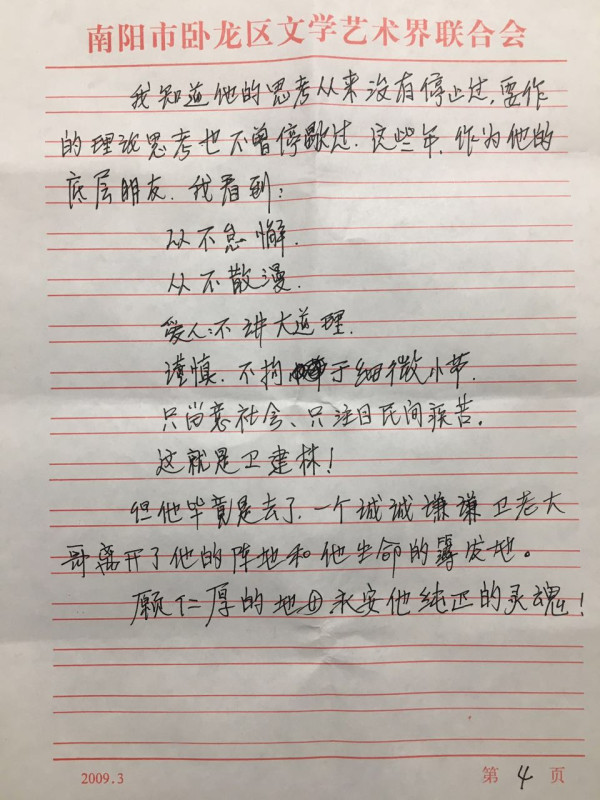 南阳市卧龙区文学艺术界联合会
我知道他的思考从来没有停止过,要作
的理论思考也不曾停歇过.这些年,作为他的
底层朋友.我看到:
从不怠懈.
从不散漫.
爱人:不讲大道理.
谨慎.不拘于细微小节.
只留意社会、只注目民间疾苦.
这就是卫建林!
但他毕竟是去了.一个诚诚谦谦卫老大
哥离开了他的阵地和他生命的发地。
愿仁厚的地母永安他纯正的灵魂!
2009.3
第 4 页